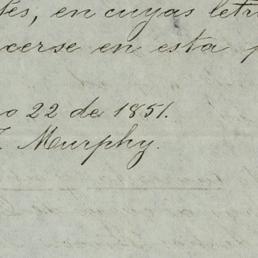 tés, en cuyas letr
cerse en esta p
o 22 de 1851.
Murphy.